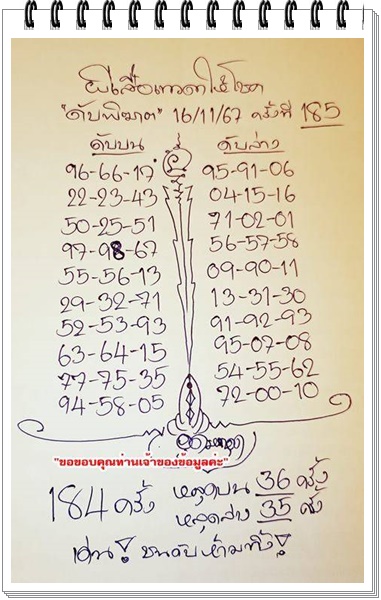 ผีเสื้อเทวดาให้โชค
"ดับพิฆาต" 16/11/67 ครั้งที่ 185
ดับบน ดับล่าง
96-66-17 95-91-06
22-23-43 04-15-16
50-25-51 71-02-01
97-98-67 56-57-58
55-56-13 09-90-11
29-32-71 13-31-30
52-53-93 91-92-93
63-64-15 95-07-08
77-75-35 54-55-62
94-58-05 72-00-10
"ขอขอบคุณท่านเจ้าของข้อมูลค่ะ"
184 ครั้ง หลุดบน 36 ครั้ง
หลุดล่าง 35 ครั้ง
เด่น! ชนดับห้ามทิ้ง!